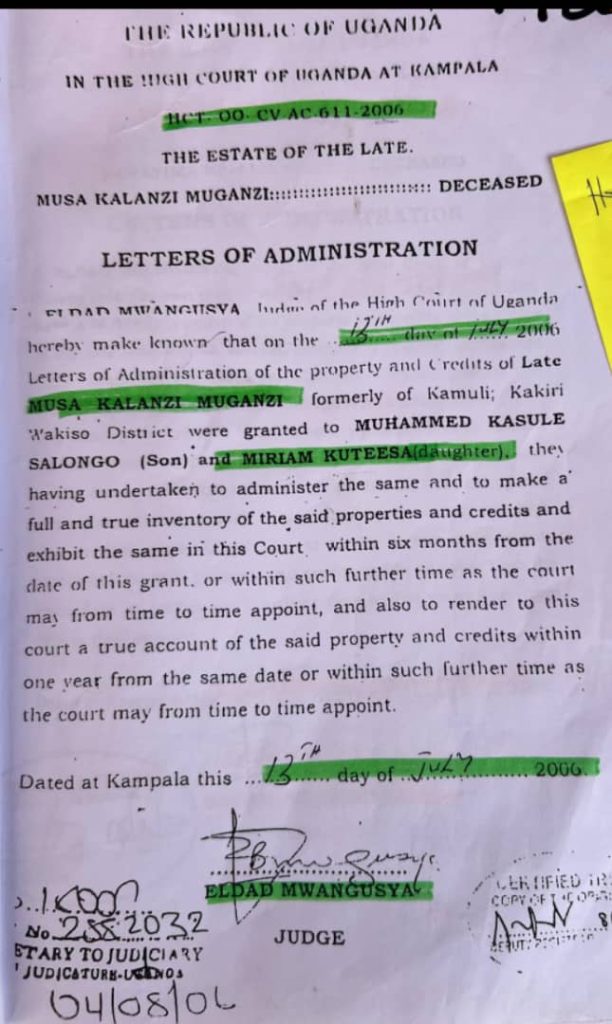 THE REPUBLIC OF UGANDA
IN THE HIGH COURT OF UGANDA AT KAMPALA
HCT- OO- CV-AC-611-2006
THE ESTATE OF THE LATE.
MUSA KALANZI MUGANZI:::::::::::::::::::::::::::: DECEASED
LETTERS OF ADMINISTRATION
ELDAD MWANGUSYA Judge of the High Court of Uganda
hereby make known that on the ..13TH.... day of JULY 2006
Letters of Administration of the property and Credits of Late
MUSA KALANZI MUGANZI formerly of Kamuli; Kakiri
Wakiso District were granted to MUHAMMED KASULE
SALONGO (Son) and MIRIAM KUTEESA(daughter), they
having undertaken to administer the same and to make a
full and true inventory of the said properties and credits and
exhibit the same in this Court within six months from the
date of this grant. or within such further time as the court
may from time to time appoint, and also to render to this
court a true account of the said property and credits within
one year from the same date or within such further time as
the court may from time to time appoint.
Dated at Kampala this ...13TH...... day of ..JULY............ 2006.
ELDAD MWANGUSYA
JUDGE
No. 2032
ETARY TO JUDICIARY
JUDICATURE-
04/08/06
CERTIFIED TR
COPY OF THE ORIG